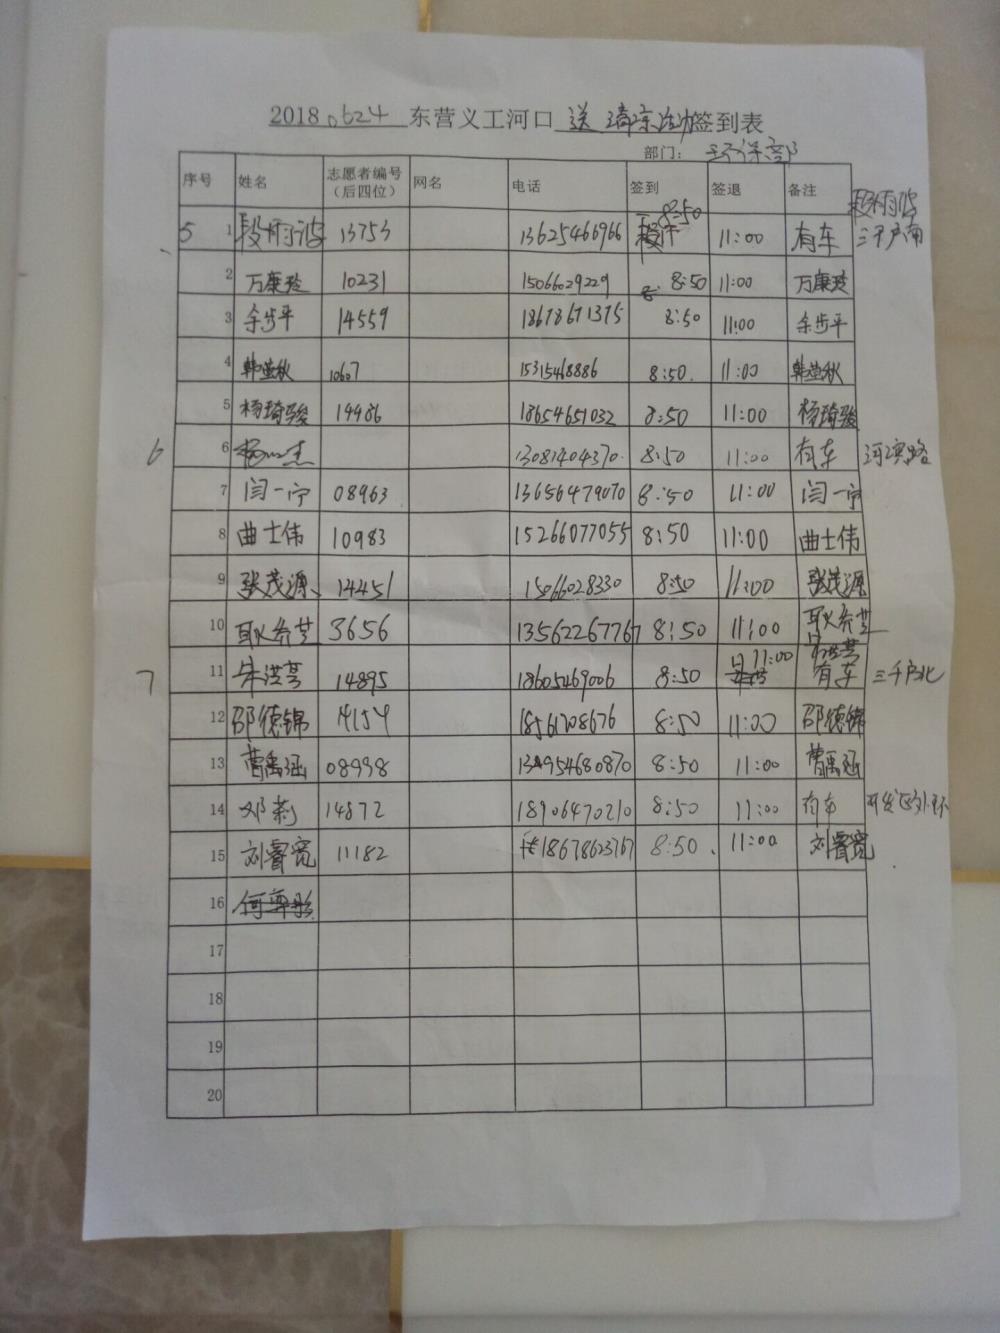 2018.0624 东营义工河口 送清凉活动签到表
部门: 环保部
序号 姓名 志愿者编号(后四位) 网名 电话 签到 签退 备注
段雨波
5 1 段雨波 13753 13625466966 8:50 11:00 有车 三千户南
2 万康玲 10231 15066029229 8:50 11:00 万康玲
3 余步平 14559 18678671375 8:50 11:00 余步平
4 韩莹秋 10607 15315468886 8:50 11:00 韩莹秋
5 杨琦骏 14986 18654651032 8:50 11:00 杨琦骏
6 6 13081404370 8:50 11:00 有车 河滨路
7 闫一宁 08963 13656479070 8:50 11:00 闫一宁
8 曲士伟 10983 15266077055 8:50 11:00 曲士伟
9 张茂源 14451 15066028330 8:50 11:00 张茂源
10 耿希芝 3656 13562267767 8:50 11:00 耿希芝
7 11 朱洪芳 14895 18605469006 8:50 11:00 有车 三千户北
12 邵德锦 14154 18561708676 8:50 11:00 邵德锦
13 曹禹涵 08998 13954680870 8:50 11:00 曹禹涵
14 邓莉 14872 18906470210 8:50 11:00 有车 开发区外环
15 刘睿宽 11182 18678623767 8:50 11:00 刘睿宽
16
17
18
19
20